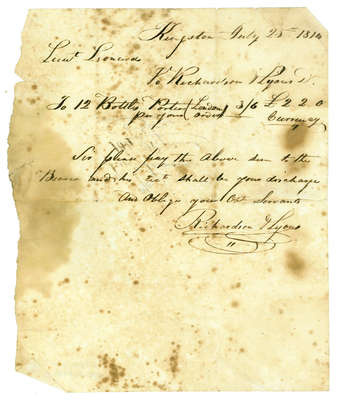 Kingston July 25th 1814
Lieut Leonard
To Richardson & Lyons Dr.
To 12 Bottles Porter (London) 3/6 £2 2 0
per your order Currency
Sir please pay the above sum to the
Bearer and his Rect shall be your discharge
And Oblige your Obt Servants
Richardson & Lyons